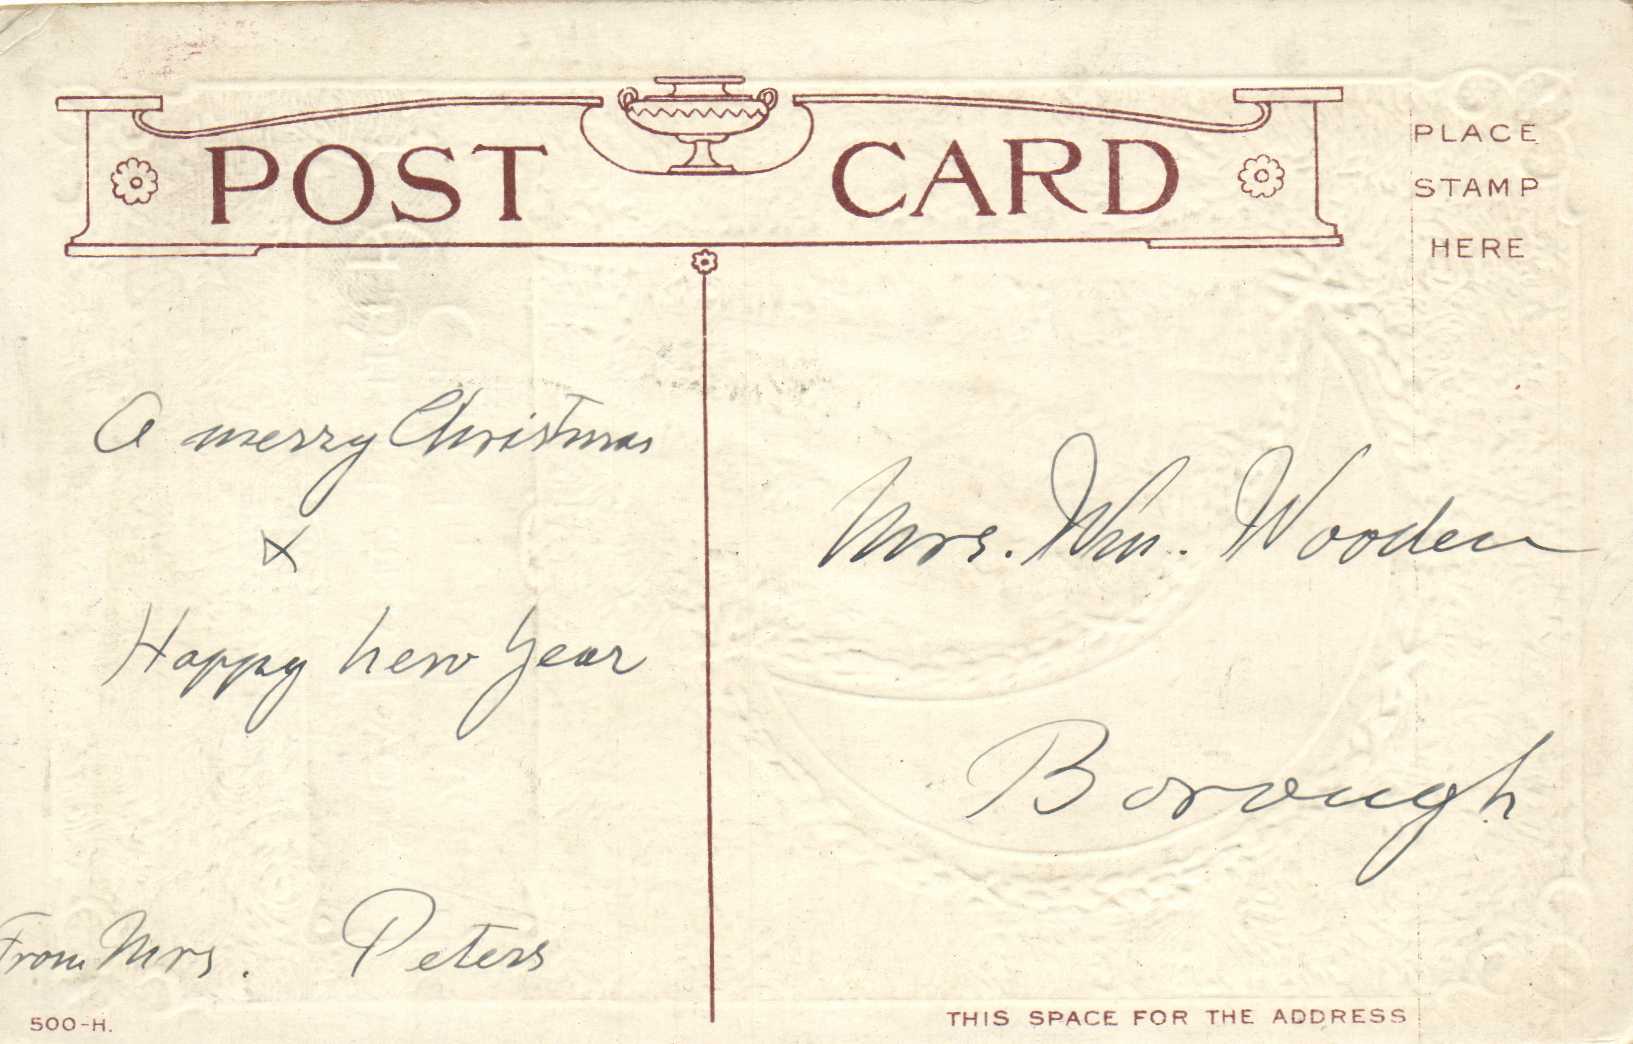 POST CARD
PLACE
STAMP
HERE
A merry Christmas
&
Happy new year
From Mrs. Peters
Mrs. Wm. Wooden
Borough
500-H.
THIS SPACE FOR THE ADDRESS